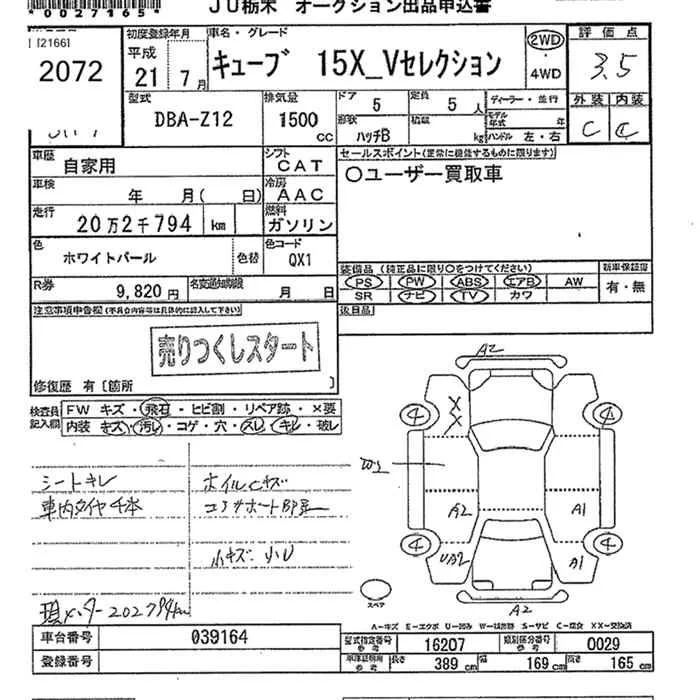 *0027165*
JU栃木 オークション出品申込書
[2166]
2072
初度登録年月
平成
21 7月
車名・グレード
キューブ 15X_Vセレクション
2WD
・
4WD
評価点
3.5
外装 内装
C C
型式
DBA-Z12
排気量
1500 cc
ドア
5
定員
5 人
形状
ハッチB
積載
kg
ディーラー・並行
モデル年式 年
ハンドル 左・右
車歴
自家用
シフト
CAT
セールスポイント(正常に機能するものに限ります)
〇ユーザー買取車
車検
年 月( 日)
冷房
AAC
走行
20万2千794 km
燃料
ガソリン
色
ホワイトパール
色替
色コード
QX1
R券
9,820 円
名変通知期限
月 日
装備品(純正品に限り〇をつけてください)
PS PW ABS エアB AW
SR ナビ TV カワ
新車保証書
有・無
後日品
注意事項申告欄(不具合内容等は具体的に記入して下さい)
売りつくしスタート
修復歴 有〔箇所 〕
検査員記入欄
FW キズ・飛石・ヒビ割・リペア跡・×要
内装 キズ・汚レ・コゲ・穴・スレ・キレ・破レ
シートキレ
車内タイヤ4本
ホイルCキズ
小キズ 小U
現メーター202794km
A2
X
X
4
4
A2
A1
4
4
UA2
A1
A2
スペア
A-キズ E-エクボ U-凹み W-補修跡 S-サビ C-腐食 XX-交換済
車台番号
039164
登録番号
型式指定番号
参考
16207
類別区分番号
参考
0029
車庫証明用
参考
長さ
389 cm
幅
169 cm
高さ
165 cm